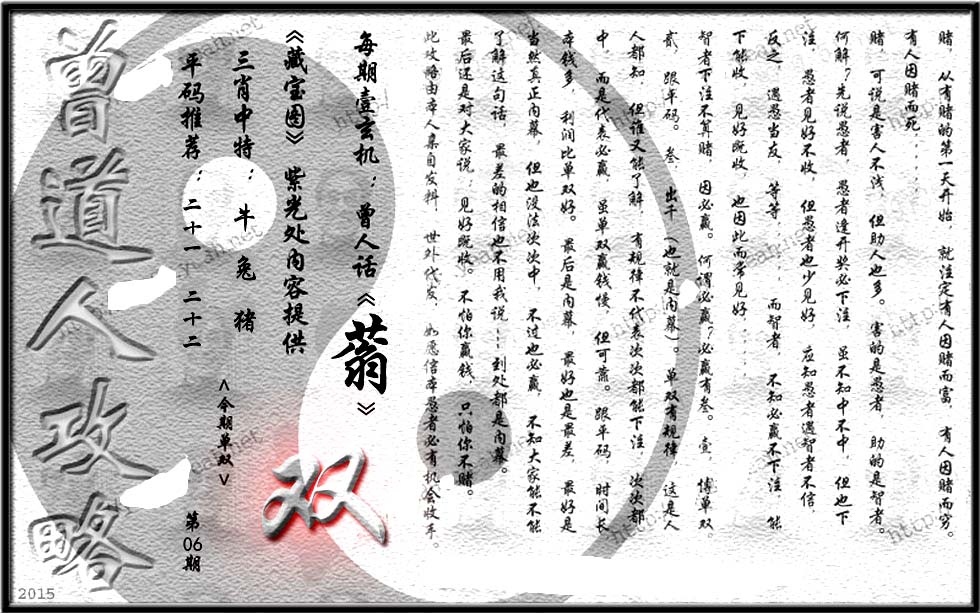 赌，从有赌的第一天开始，就注定有人因赌而富，有人因赌而穷。
有人因赌而死......
赌，可说是害人不浅，但助人也多。害的是愚者，助的是智者。
何解？先说愚者，愚者逢开奖必下注，虽不知中不中，但也下
注，愚者见好不收，但愚者也少见好，应知愚者遇智者不信，
反之，遇愚当友，等等......而智者，不知必赢不下注，能
下能收，见好既收，也因此而常见好......
智者下注不算赌，因必赢。何谓必赢？必赢有叁。壹，博单双，
贰，跟平码。叁，出千（也就是内幕）。单双有规律，这是人
人都知，但谁又能了解，有规律不代表次次都能下注，次次都
中，而是代表必赢，虽单双赢钱慢，但可靠。跟平码，时间长，
本钱多，利润比单双好。最后是内幕，最好也是最差，最好是
当然真正内幕，但也没法次次中，不过也必赢，不知大家能不能
了解这句话，最差的相信也不用我说......到处都是内幕。
最后还是对大家说：见好既收。不怕你赢钱，只怕你不赌。
此攻略由本人集自发料，世外代友，如愿信本愚者必有机会收手。
每期壹玄机：曾人话《蓊》
《藏宝图》紫光处内容提供
三肖中特：牛 兔 猪
平码推荐：二十一 二十二
<今期单双>
双
第06期
曾道人攻略
2015